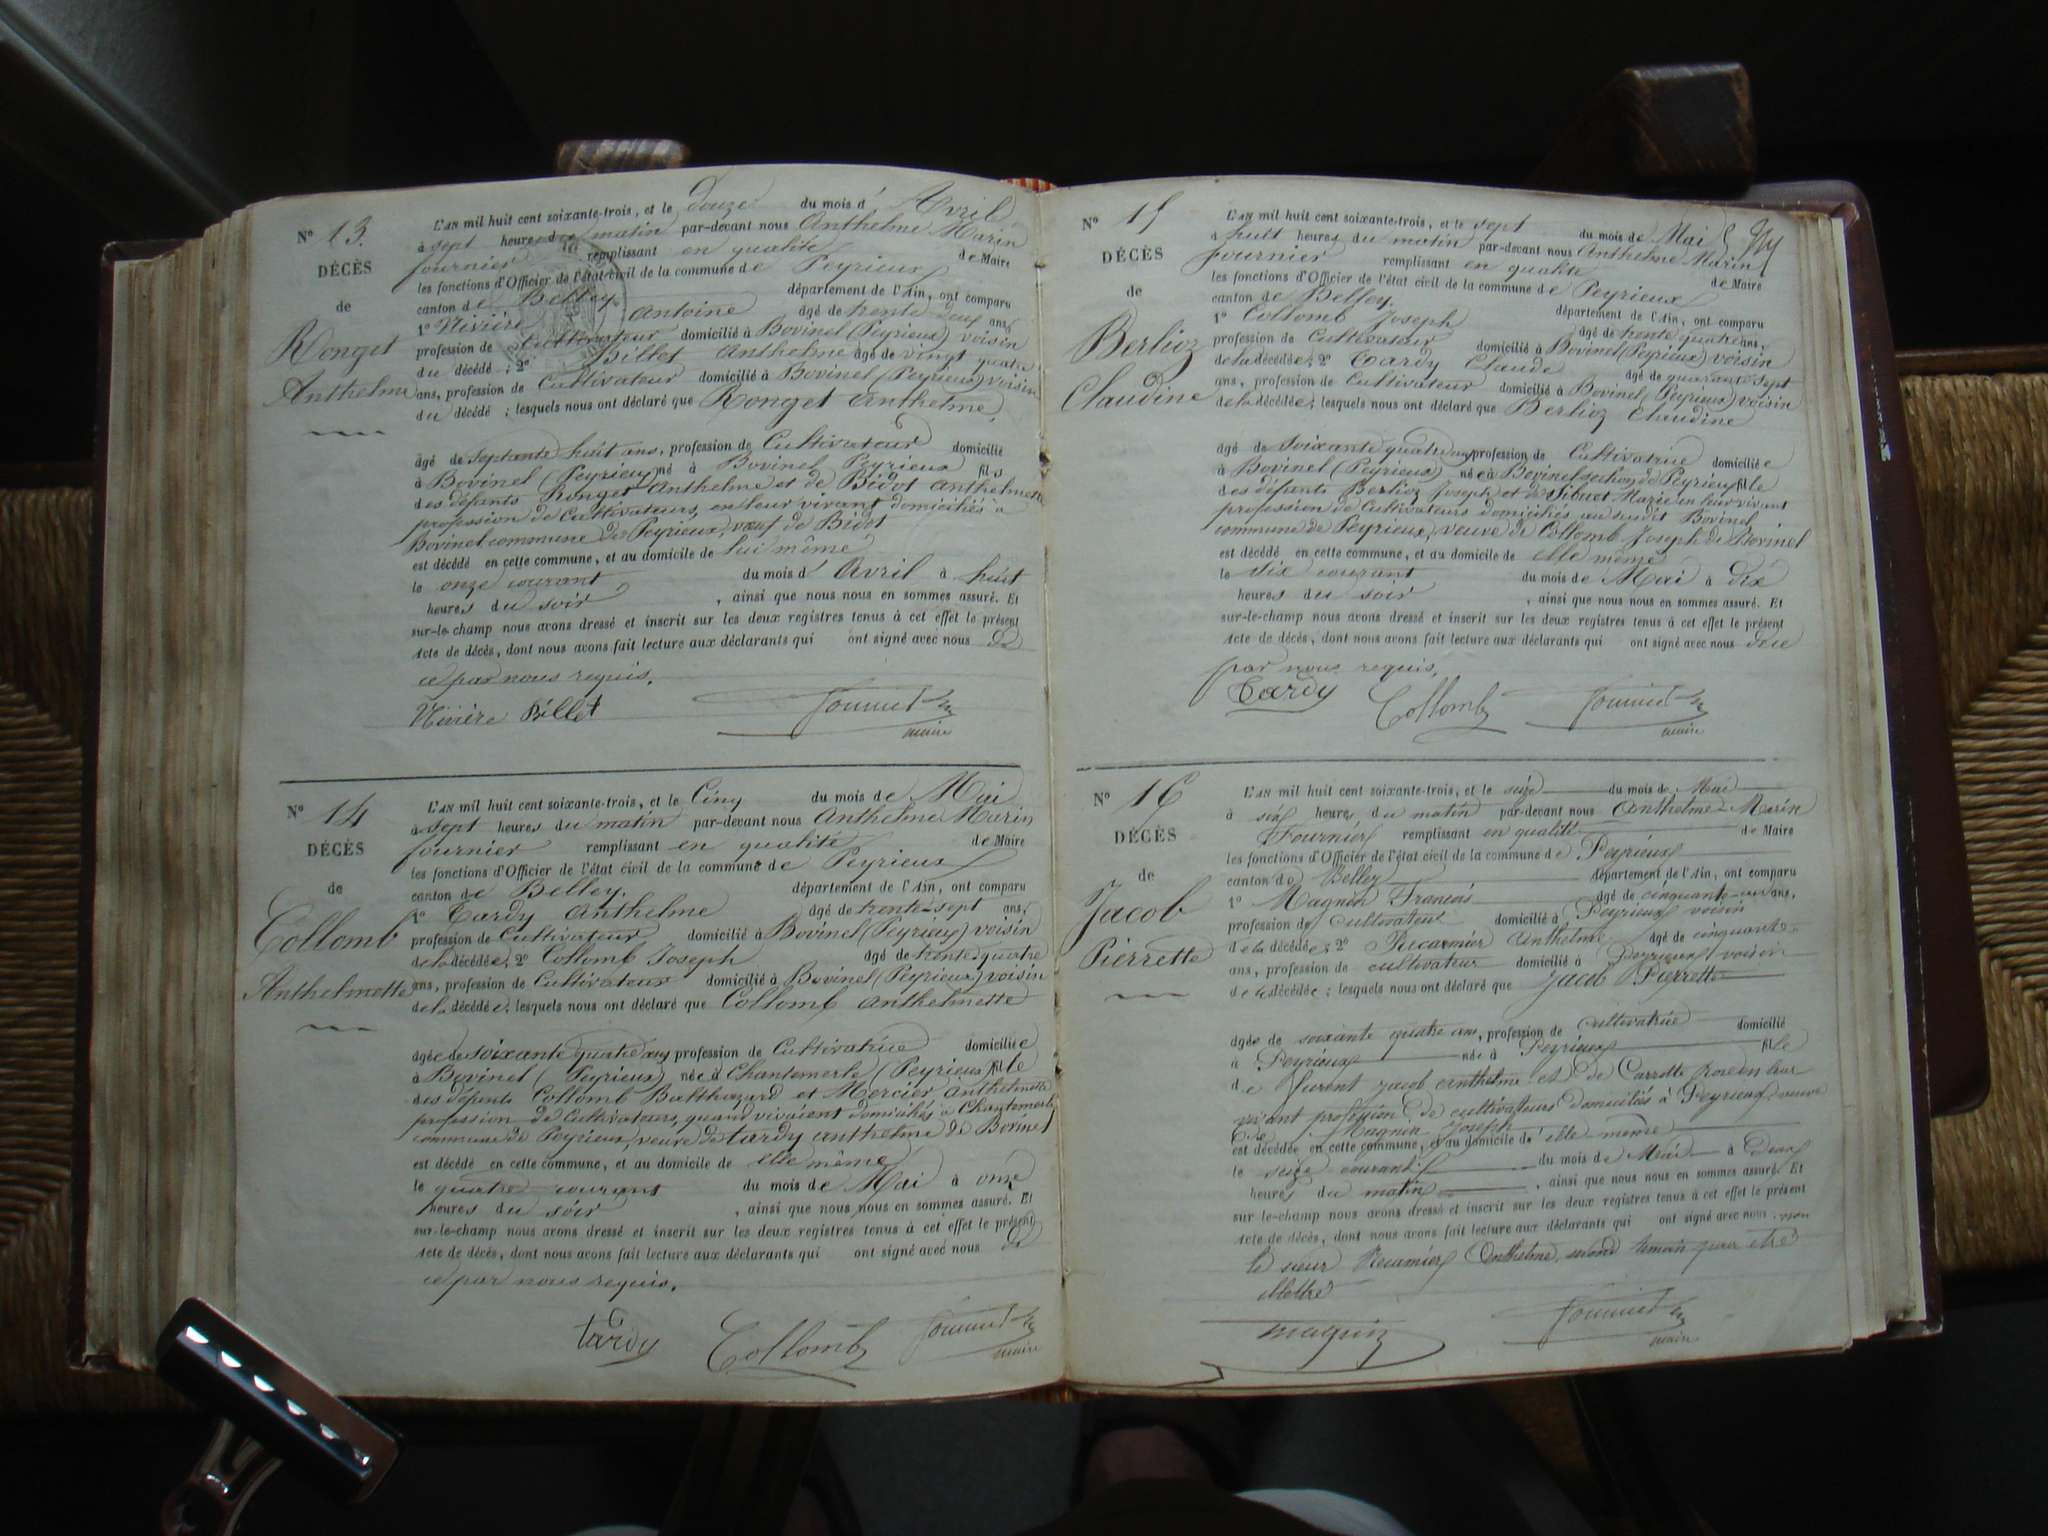 N° 13.
DÉCÈS
de
Ronget
Anthelme
L'AN mil huit cent soixante-trois, et le douze du mois d' Avril
à sept heures du matin par-devant nous Anthelme Marin
fournier remplissant en qualité de Maire
les fonctions d'Officier de l'état civil de la commune de Peyrieux
canton de Belley. département de l'Ain, ont comparu
1° Nivière Antoine âgé de trente deux ans,
profession de Cultivateur domicilié à Bovinel (Peyrieux) voisin
du décédé ; 2° Billet Anthelme âgé de vingt quatre
ans, profession de Cultivateur domicilié à Bovinel (Peyrieux) voisin
du décédé ; lesquels nous ont déclaré que Ronget Anthelme,
âgé de Septante huit ans, profession de Cultivateur domicilié
à Bovinel (Peyrieux) né à Bovinel Peyrieux fils
des défunts Ronget Anthelme et de Bidot Anthelmette
profession de Cultivateurs, en leur vivant domiciliés à
Bovinel commune de Peyrieux, vœuf de Bidot
est décédé en cette commune, et au domicile de lui même
le onze courant du mois d' Avril à huit
heures du soir , ainsi que nous nous en sommes assuré. Et
sur-le-champ nous avons dressé et inscrit sur les deux registres tenus à cet effet le présent
Acte de décès, dont nous avons fait lecture aux déclarants qui ont signé avec nous de
ce par nous requis.
Nivière Billet fournier
maire
N° 14
DÉCÈS
de
Collomb
Anthelmette
L'AN mil huit cent soixante-trois, et le Cinq du mois de Mai
à sept heures du matin par-devant nous Anthelme Marin
fournier remplissant en qualité de Maire
les fonctions d'Officier de l'état civil de la commune de Peyrieux
canton de Belley. département de l'Ain, ont comparu
1° Tardy Anthelme âgé de trente-sept ans,
profession de Cultivateur domicilié à Bovinel (Peyrieux) voisin
de la décédée; 2° Collomb Joseph âgé de trente quatre
ans, profession de Cultivateur domicilié à Bovinel (Peyrieux) voisin
de la décédée; lesquels nous ont déclaré que Collomb Anthelmette
âgée de soixante quatre ans profession de Cultivatrice domiciliée
à Bovinel (Peyrieux) née à Chantemerle (Peyrieux) fille
des défunts Collomb Balthazard et Mercier Anthelmette
profession de Cultivateurs, quand vivaient domiciliés à Chantemerle
commune de Peyrieux, veuve de tardy anthelme de Bovinel
est décédé en cette commune, et au domicile de elle même
le quatre courant du mois de Mai à onze
heures du soir , ainsi que nous nous en sommes assuré. Et
sur-le-champ nous avons dressé et inscrit sur les deux registres tenus à cet effet le présent
Acte de décès, dont nous avons fait lecture aux déclarants qui ont signé avec nous de
ce par nous requis.
tardy Collomb fournier
maire
N° 15
DÉCÈS
de
Berlioz
Claudine
L'AN mil huit cent soixante-trois, et le sept du mois de Mai
à huit heures du matin par-devant nous Anthelme Marin
fournier remplissant en qualité de Maire
les fonctions d'Officier de l'état civil de la commune de Peyrieux
canton de Belley. département de l'Ain, ont comparu
1° Collomb Joseph âgé de trente quatre ans,
profession de Cultivateur domicilié à Bovinel (Peyrieux) voisin
de la décédée; 2° Tardy Claude âgé de quarante sept
ans, profession de Cultivateur domicilié à Bovinel (Peyrieux) voisin
de la décédée; lesquels nous ont déclaré que Berlioz Claudine
âgé de soixante quatre ans profession de Cultivatrice domiciliée
à Bovinel (Peyrieux) née à Bovinel section de Peyrieux fille
des défunts Berlioz Joseph et de Sibuet Marie en leur vivant
profession de Cultivateurs domiciliés au susdit Bovinel
commune de Peyrieux, veuve de Collomb Joseph de Bovinel
est décédé en cette commune, et au domicile de elle même
le six courant du mois de Mai à dix
heures du soir , ainsi que nous nous en sommes assuré. Et
sur-le-champ nous avons dressé et inscrit sur les deux registres tenus à cet effet le présent
Acte de décès, dont nous avons fait lecture aux déclarants qui ont signé avec nous de ce
par nous requis.
Tardy Collomb fournier
maire
N° 16
DÉCÈS
de
Jacob
Pierrette
L'AN mil huit cent soixante-trois, et le seize du mois de Mai
à six heures du matin par-devant nous Anthelme Marin
Fournier remplissant en qualité de Maire
les fonctions d'Officier de l'état civil de la commune de Peyrieux
canton de Belley département de l'Ain, ont comparu
1° Magnin Francois âgé de cinquante-un ans,
profession de cultivateur domicilié à Peyrieux voisin
de la décédée; 2° Recamier Anthelme âgé de cinquante
ans, profession de cultivateur domicilié à Peyrieux voisin
de la décédée ; lesquels nous ont déclaré que Jacob Pierrette
âgée de soixante quatre ans, profession de Cultivatrice domicilié
à Peyrieux née à Peyrieux fille
de furent Jacob Anthelme et de Carrotte Rose en leur
vivant profession de cultivateurs domiciliés à Peyrieux, veuve
de Magnin Joseph
est décédée en cette commune, et au domicile d' elle même
le seize courant du mois de Mai à deux
heures du matin , ainsi que nous nous en sommes assuré. Et
sur-le-champ nous avons dressé et inscrit sur les deux registres tenus à cet effet le présent
Acte de décès, dont nous avons fait lecture aux déclarants qui ont signé avec nous non
le sieur Recamier Anthelme, second témoin pour être
illettré
magnin fournier
maire